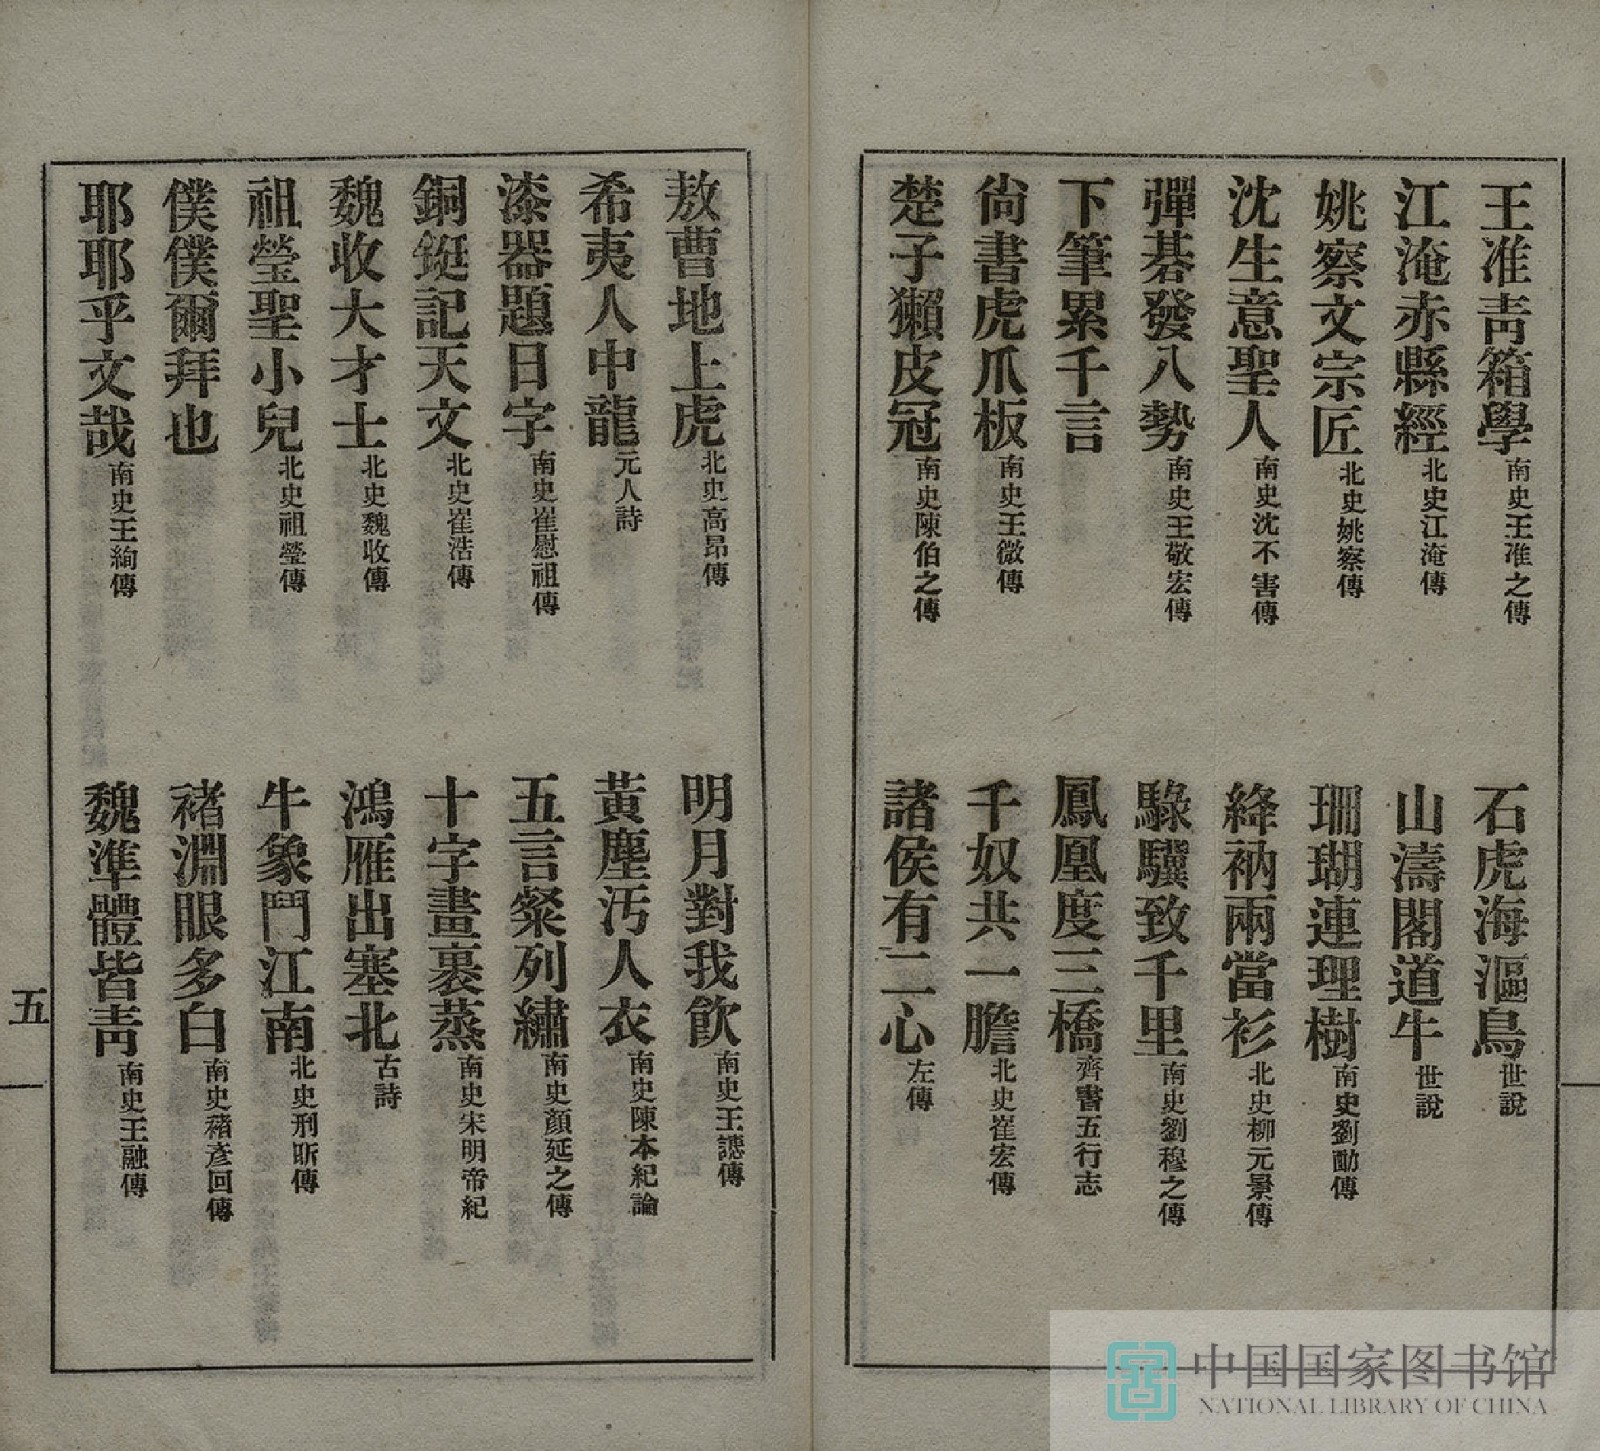 王准靑箱學南史王准之傳
石虎海漚鳥世說
江淹赤縣經北史江淹傳
山濤閣道牛世說
姚察文宗匠北史姚察傳
珊瑚連理樹南史劉勔傳
沈生意聖人南史沈不害傳
絳衲兩當衫北史柳元景傳
彈碁發八勢南史王敬宏傳
騄驥致千里南史劉穆之傳
下筆累千言
鳳凰度三橋齊書五行志
尙書虎爪板南史王微傳
千奴共一膽北史崔宏傳
楚子獺皮冠南史陳伯之傳
諸侯有二心左傳
敖曹地上虎北史高昂傳
明月對我飮南史王譓傳
希夷人中龍元人詩
黃塵汚人衣南史陳本紀論
漆器題日字南史崔慰祖傳
五言粲列繡南史顏延之傳
銅鋌記天文北史崔浩傳
十字畫裹蒸南史宋明帝紀
魏收大才士北史魏收傳
鴻雁出塞北古詩
祖瑩聖小兒北史祖瑩傳
牛象鬥江南北史刑昕傳
僕僕爾拜也
褚淵眼多白南史褚彥回傳
耶耶乎文哉南史王絢傳
魏準體皆靑南史王融傳
五
中国国家图书馆
NATIONAL LIBRARY OF CHINA